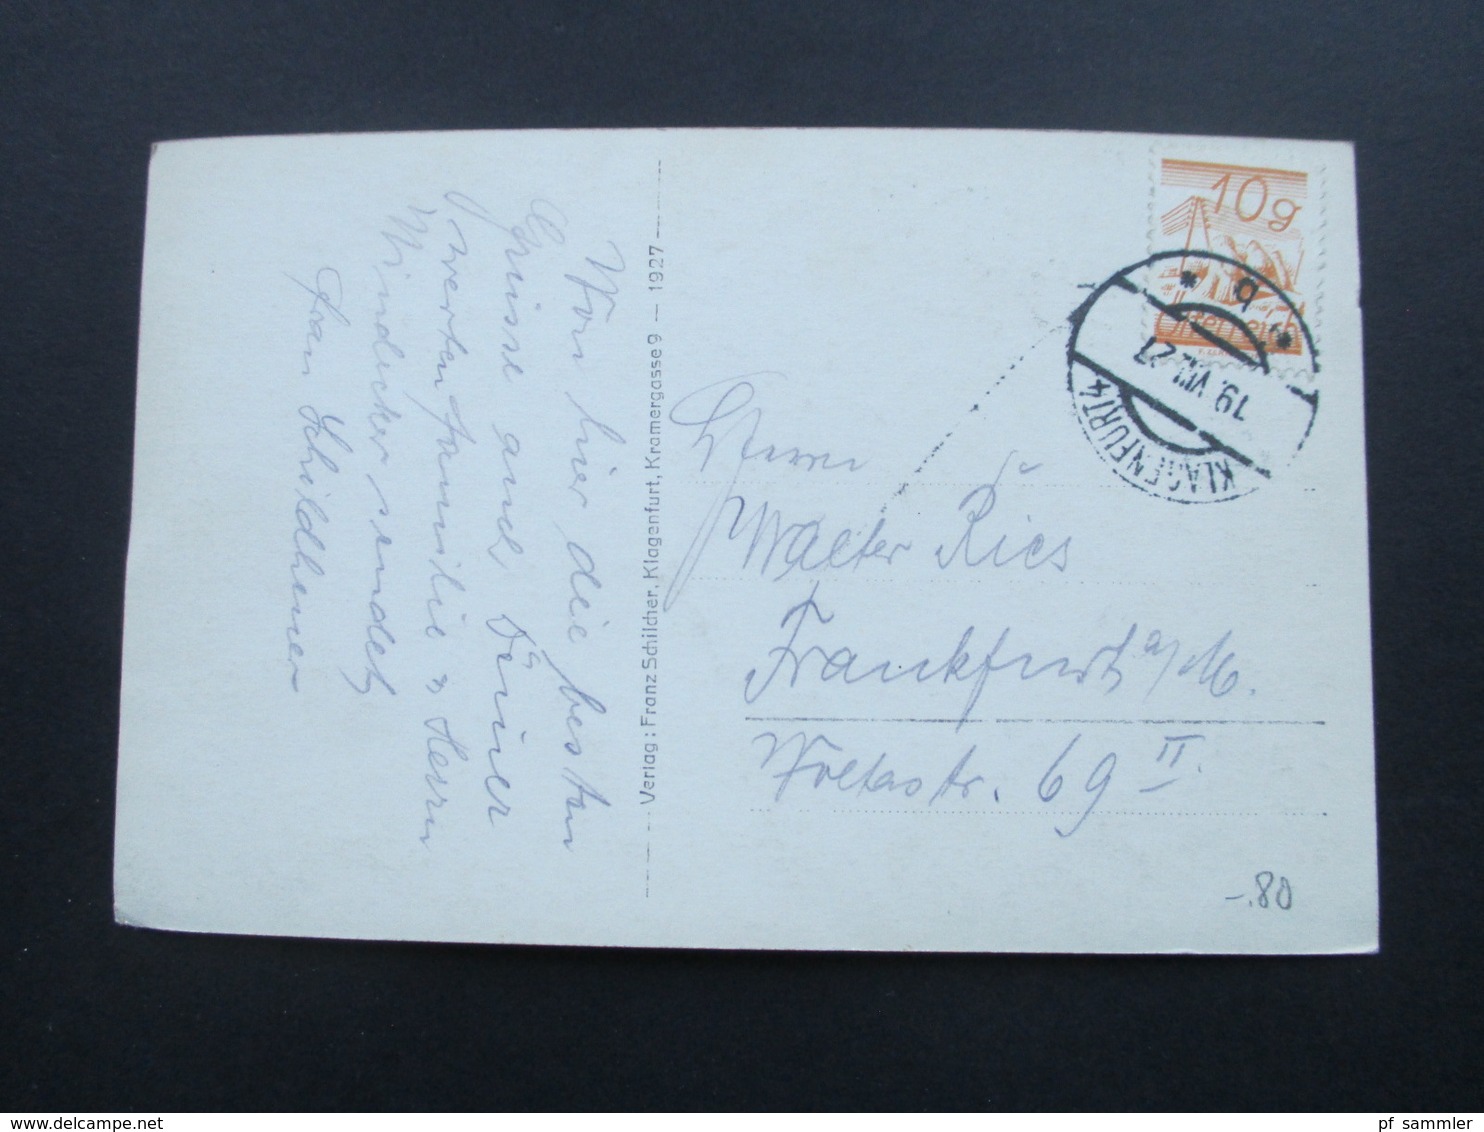 Von hier die besten
Grüsse auch Deiner
werten Familie u Herrn
Windecker sendet
Frau Schildhauer
Verlag: Franz Schilcher, Klagenfurt, Kramergasse 9 — 1927
10g
Österreich
* b *
19. VIII. 27
KLAGENFURT 4
Herrn
Walter Ries
Frankfurt a/M.
Woltastr. 69 II
-.80
delcampe.net
pf_sammler